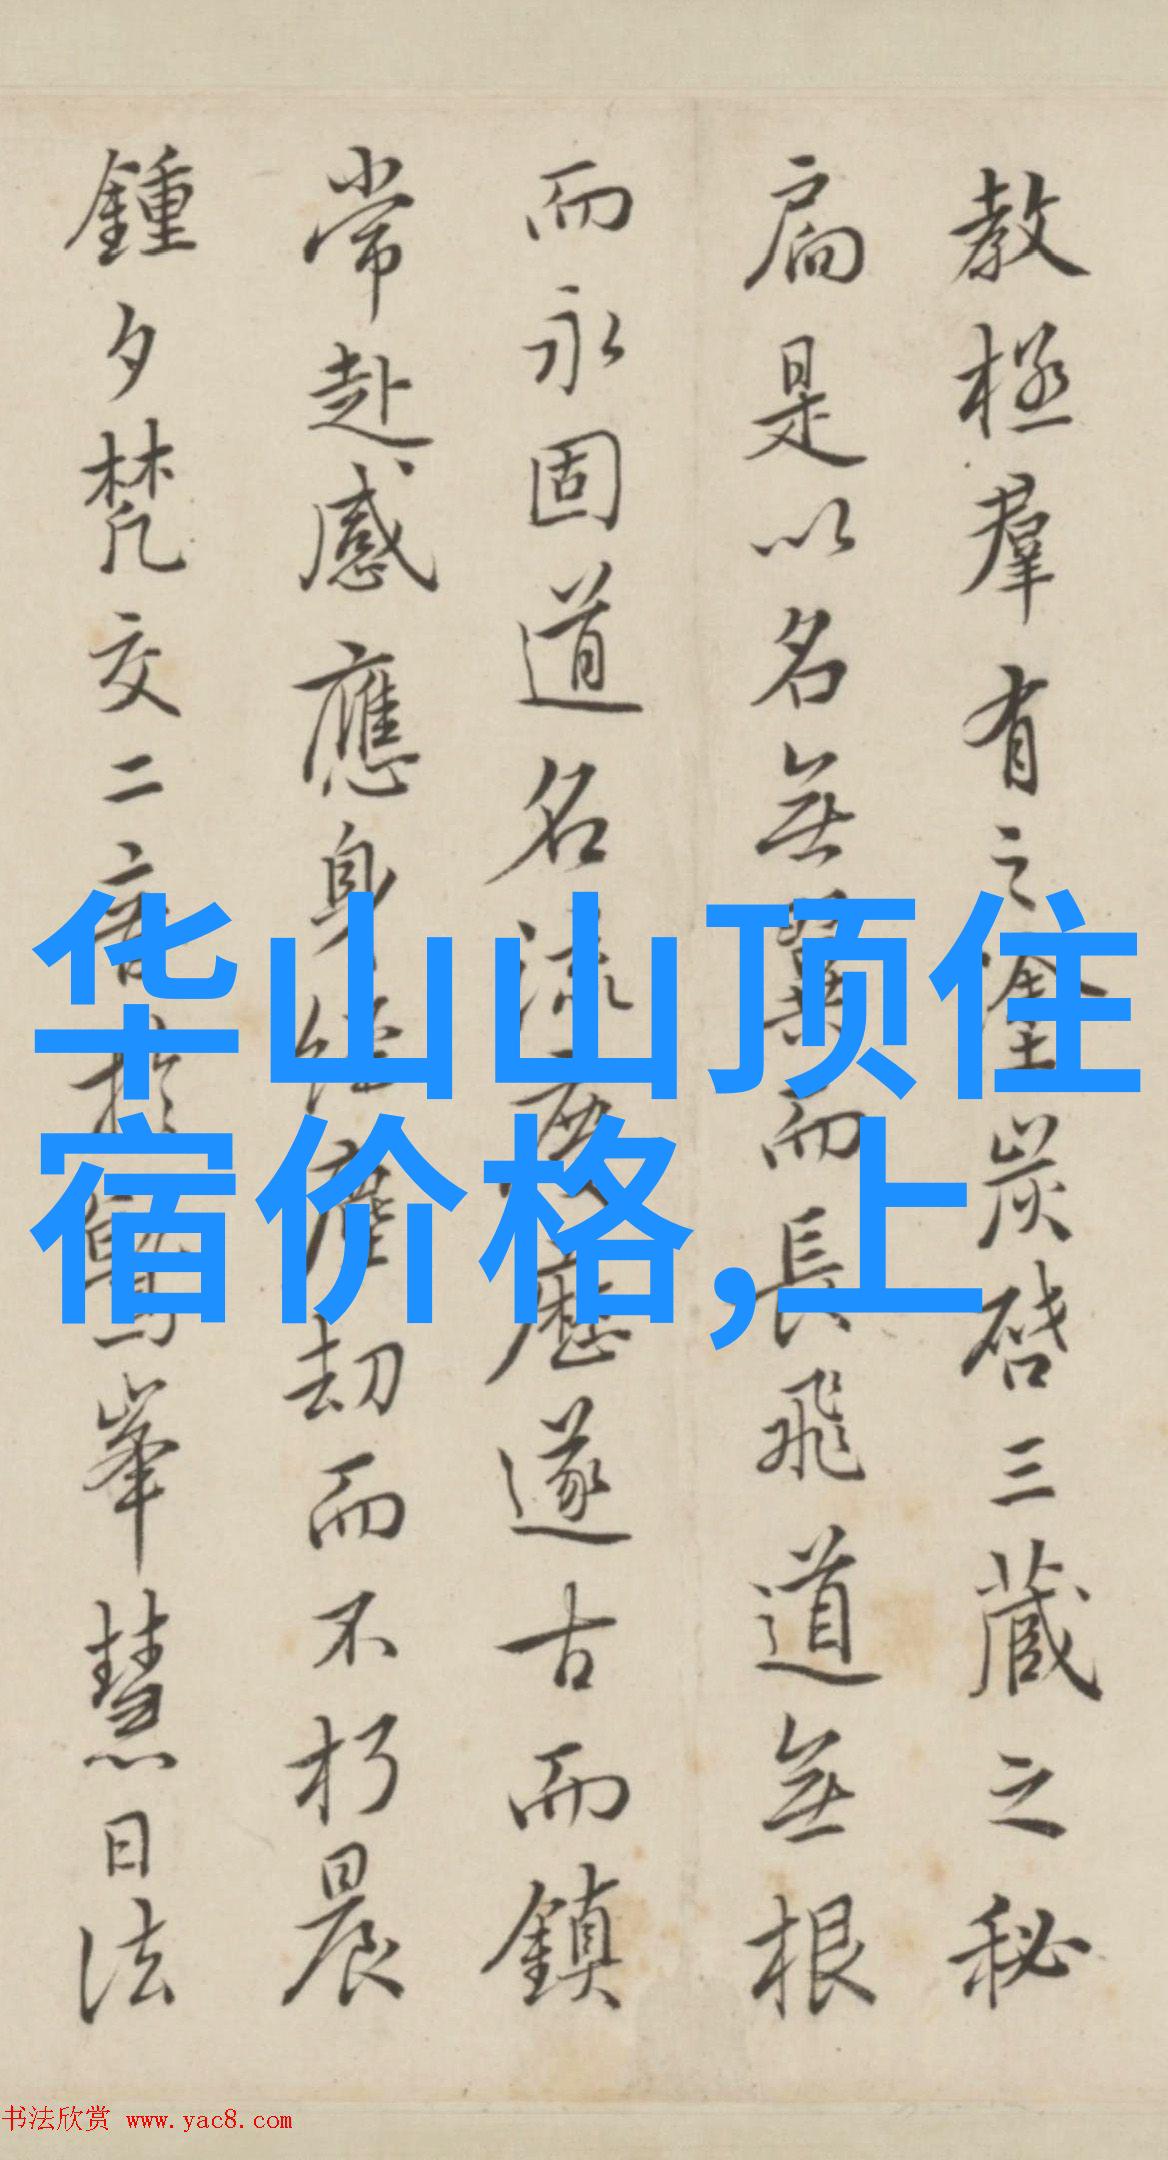 教極羣有之塗炭啓三藏之秘
扃是以名無翼而長飛道無根
而永固道名流慶歷遂古而鎮
常赴感應身經塵劫而不朽晨
鍾夕梵交二音於鷲峯慧日法
华山山顶住
宿价格,上
书法欣赏 www.yac8.com